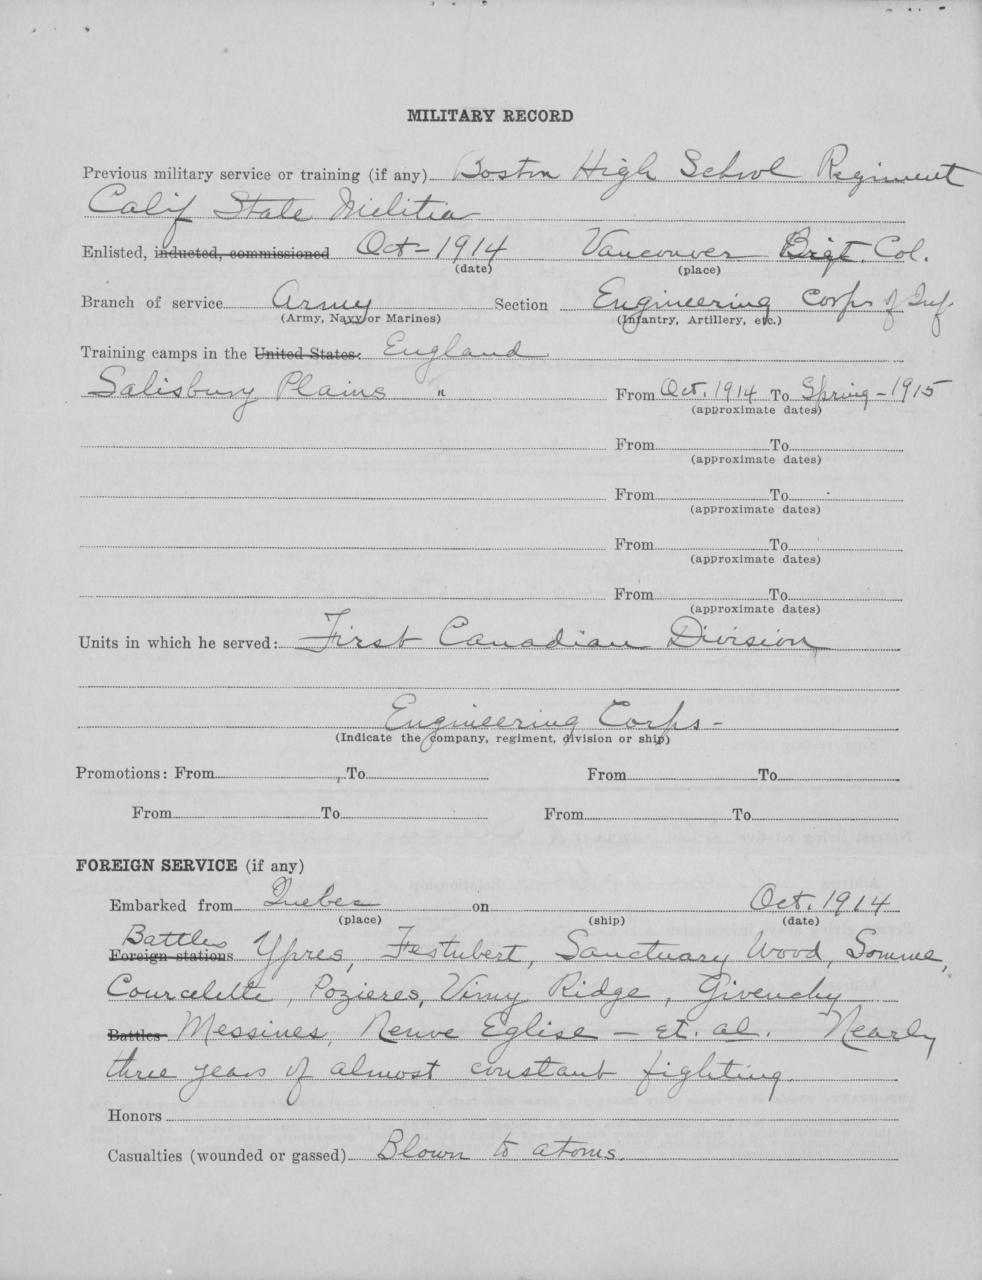 MILITARY RECORD
Previous military service or training (if any) Boston High School Regiment
Calif State Militia
Enlisted, inducted, commissioned Oct - 1914 Vancouver Brit. Col.
(date) (place)
Branch of service Army Section Engineering Corps of Inf.
(Army, Navy or Marines) (Infantry, Artillery, etc.)
Training camps in the United States: England
Salisbury Plains " From Oct. 1914 To Spring - 1915
(approximate dates)
From To
(approximate dates)
From To
(approximate dates)
From To
(approximate dates)
From To
(approximate dates)
Units in which he served: First Canadian Division
Engineering Corps -
(Indicate the company, regiment, division or ship)
Promotions: From To From To
From To From To
FOREIGN SERVICE (if any)
Embarked from Quebec on Oct. 1914
(place) (ship) (date)
Battles
Foreign stations Ypres, Festubert, Sanctuary Wood, Somme,
Courcelette, Pozieres, Vimy Ridge, Givenchy
Battles Messines, Neuve Eglise - et. al. Nearly
three years of almost constant fighting.
Honors
Casualties (wounded or gassed) Blown to atoms.